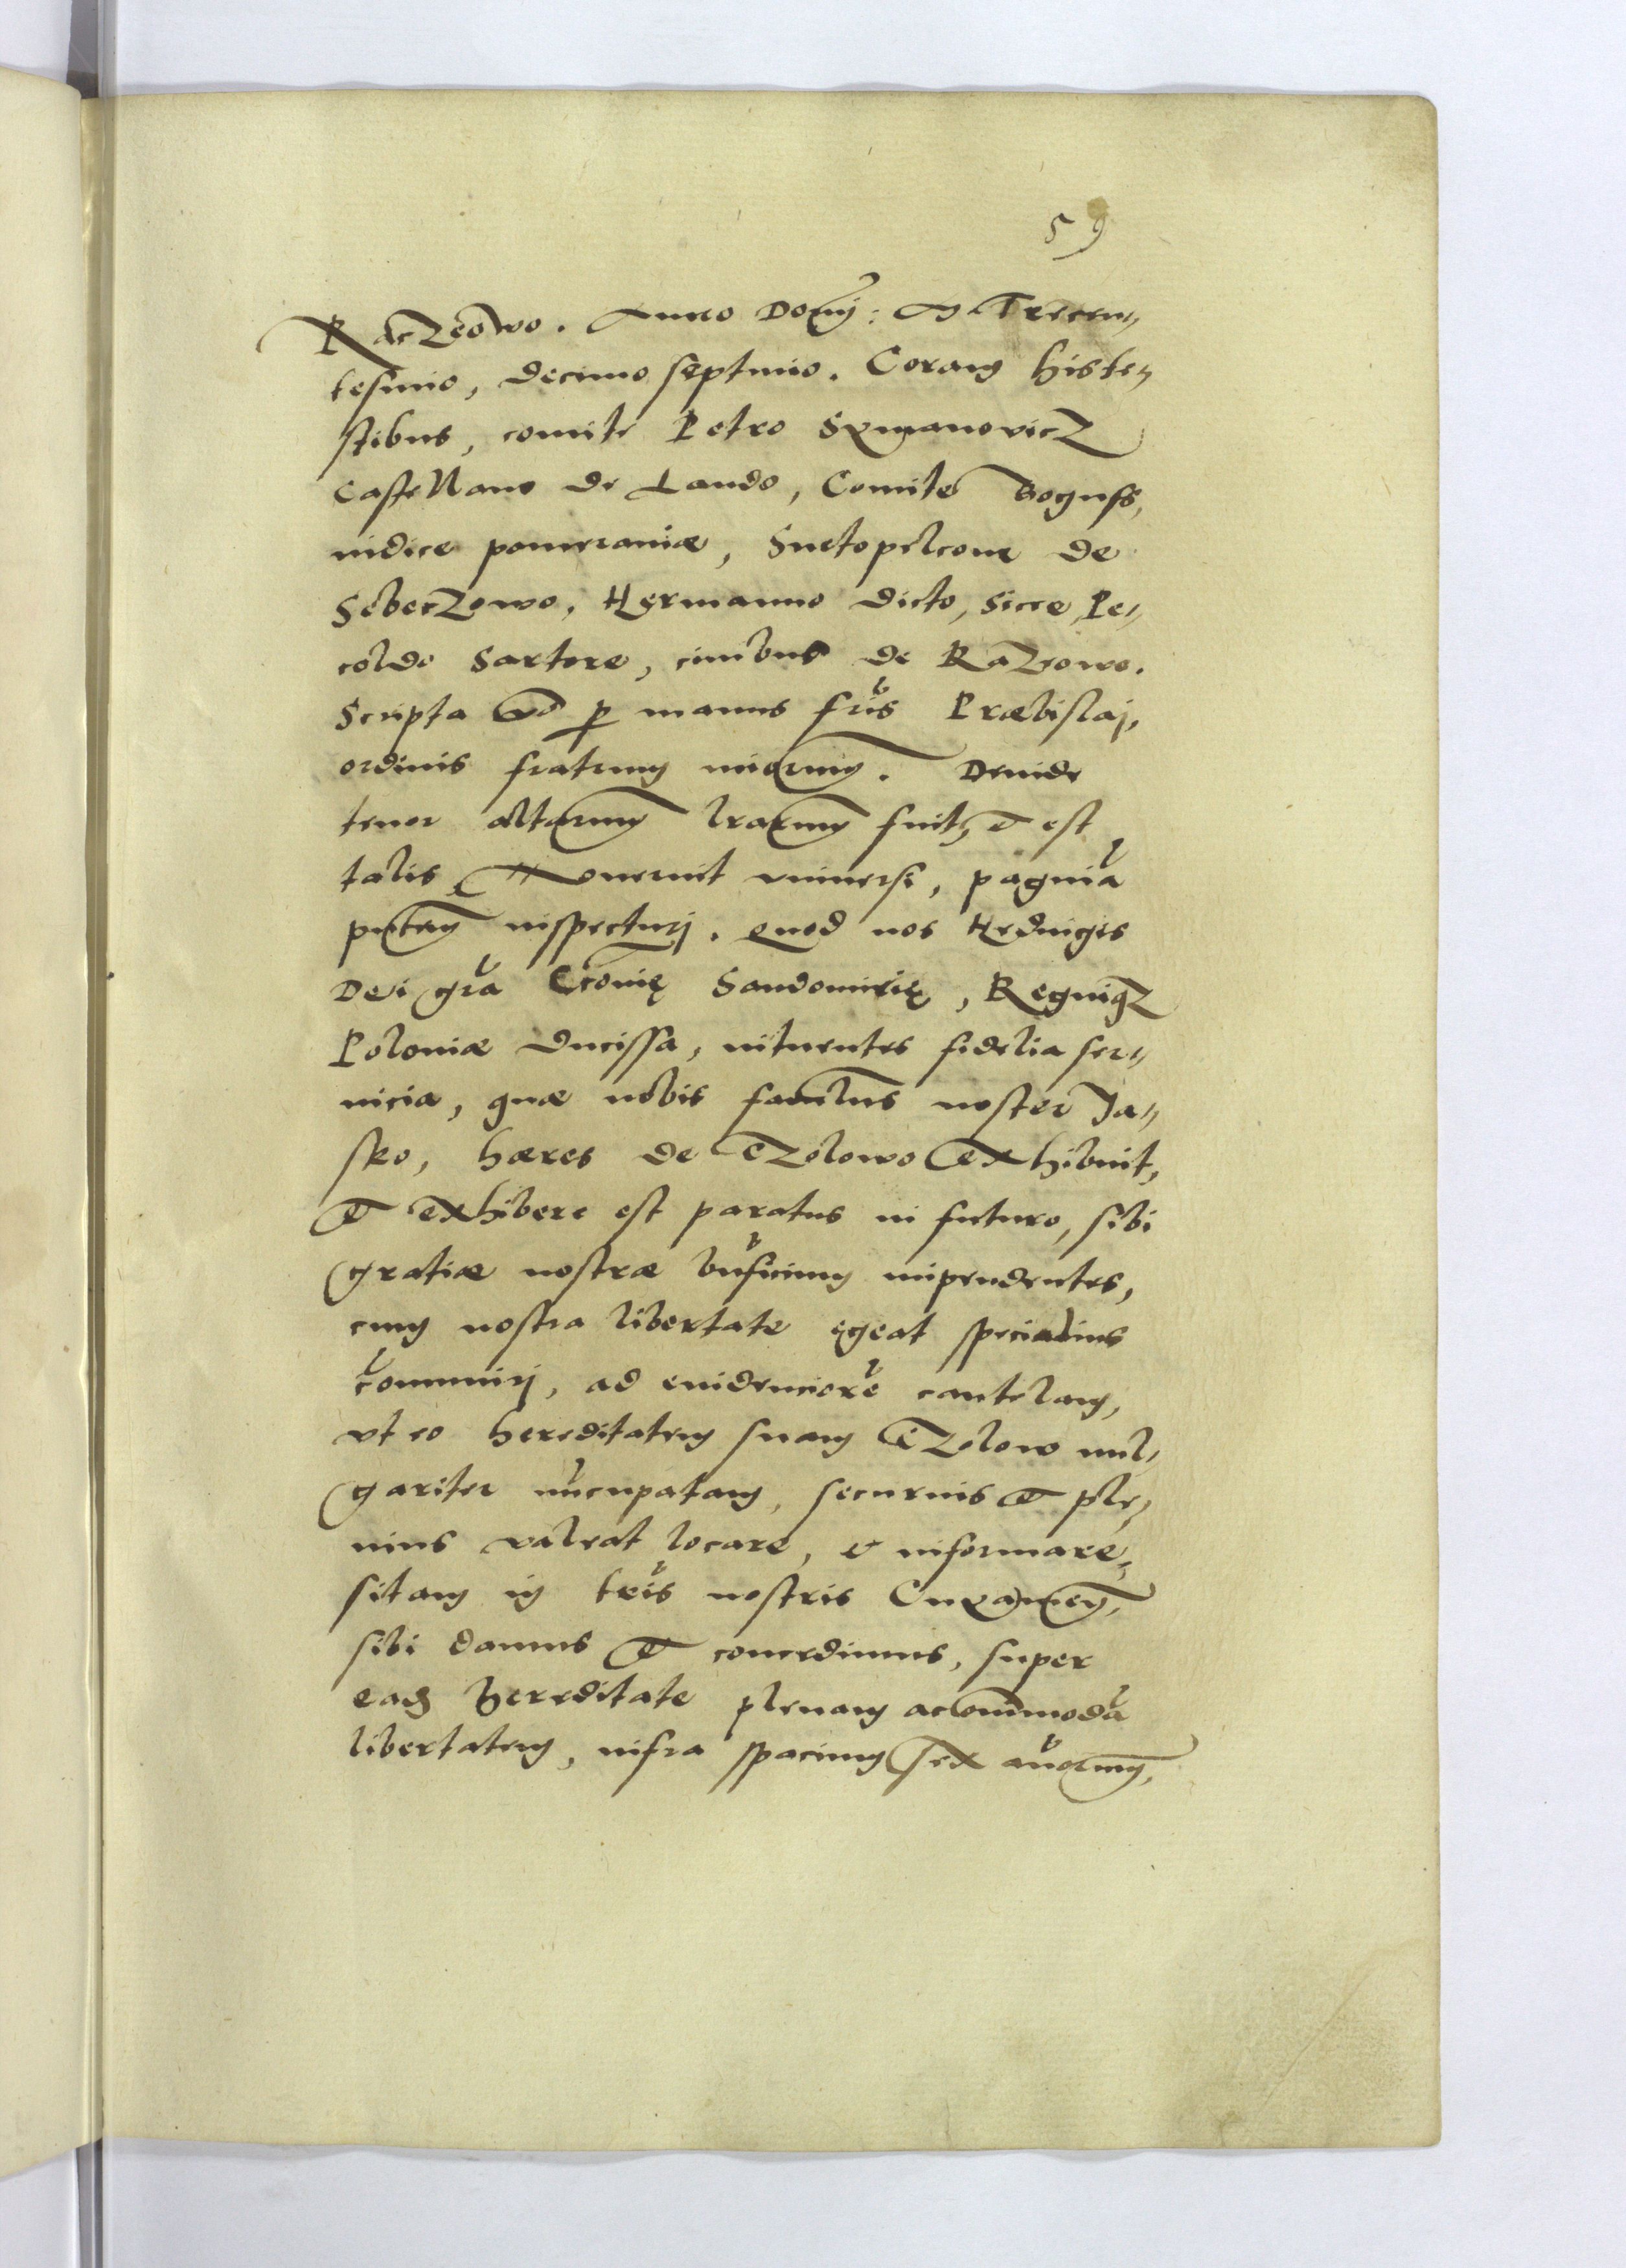 59
RaczeoWo. Anno Domj: M Trecen„
tesimo, decimo septimo. Coram his te„
stibus, comite Petro Szymanovicz
Castellano de Lando, Comite Boguss,
iudice pomeraniæ, Suetopelcone de
SeberZowo, Hermanno dicto, Sicce, Pe„
coldo Sartore, ciuibus de RaZeowo.
Scripta p manus fris Præbislaj,
ordinis fratrum miorum. Deinde
tenor altarum lrarum fuit, et est
talis, Nouerint vniuersi, paginã
pntem inspecturj. Quod nos Heduigis
Dei gra Cronię Sandomirię, RegniqZ
Poloniæ ducissa, intuentes fidelia ser„
uicia, quæ nobis famulus noster Ja„
sko, hæres de CZolowo exhibuit,
et exhibere est paratus in futuro, sibi
gratiæ nostræ bnficium impendentes,
cum nostra libertate egeat specialius
communirj, ad euidenciorẽ cautelam,
vt eo hereditatem suam CZolow uul„
gariter nũcupatam, securius et ple„
nius valeat locare, et informare,
sitam in tris nostris Cuyauien,
sibi damus et concedimus, super
eadẽ hereditate plenam accommodã
libertatem, infra spacium sex annorum,